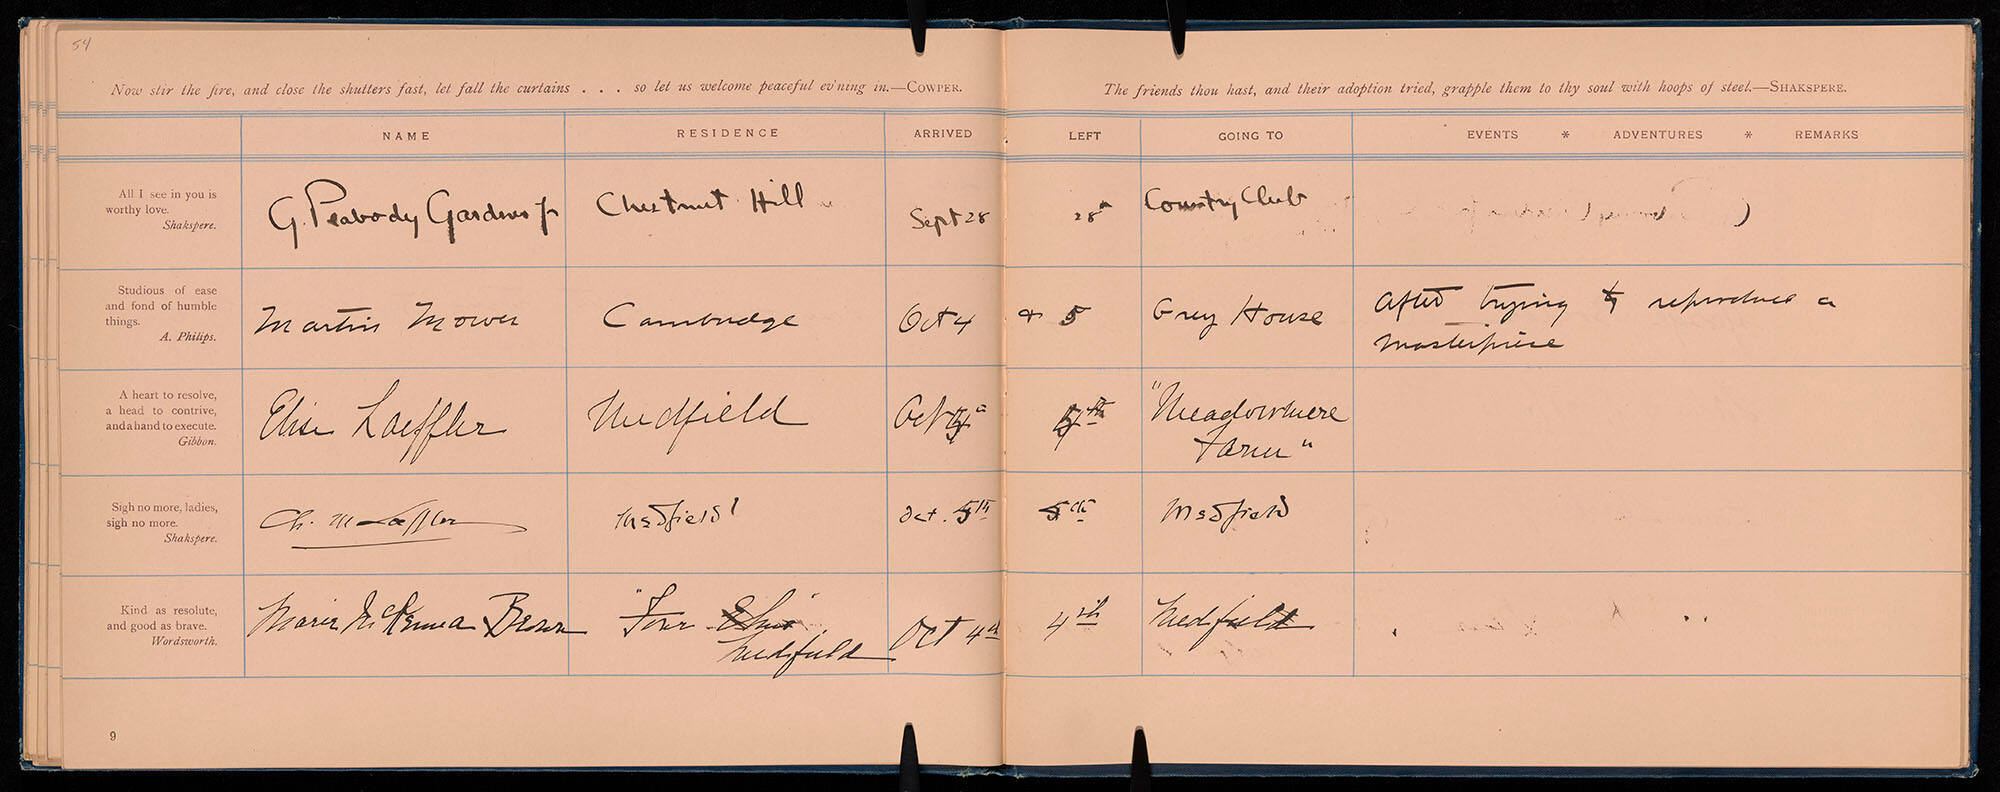 54
Now stir the fire, and close the shutters fast, let fall the curtains . . . so let us welcome peaceful ev'ning in.—COWPER.
The friends thou hast, and their adoption tried, grapple them to thy soul with hoops of steel.—SHAKSPERE.
NAME RESIDENCE ARRIVED LEFT GOING TO EVENTS * ADVENTURES * REMARKS
All I see in you is
worthy love.
Shakspere.
G. Peabody Gardner Jr Chestnut Hill Sept 28 28th Country Club
Studious of ease
and fond of humble
things.
A. Philips.
Martin Mower Cambridge Oct 4 & 5 Grey House After trying to reproduce a
masterpiece
A heart to resolve,
a head to contrive,
and a hand to execute.
Gibbon.
Elise Loeffler Medfield Oct "Meadowmere
Farm"
Sigh no more, ladies,
sigh no more.
Shakspere.
Ch. M. Loeffler Medfield Oct. 5th 5th Medfield
Kind as resolute,
and good as brave.
Wordsworth.
Brown "Four Elms"
Medfield Oct 4th 4th Medfield
9